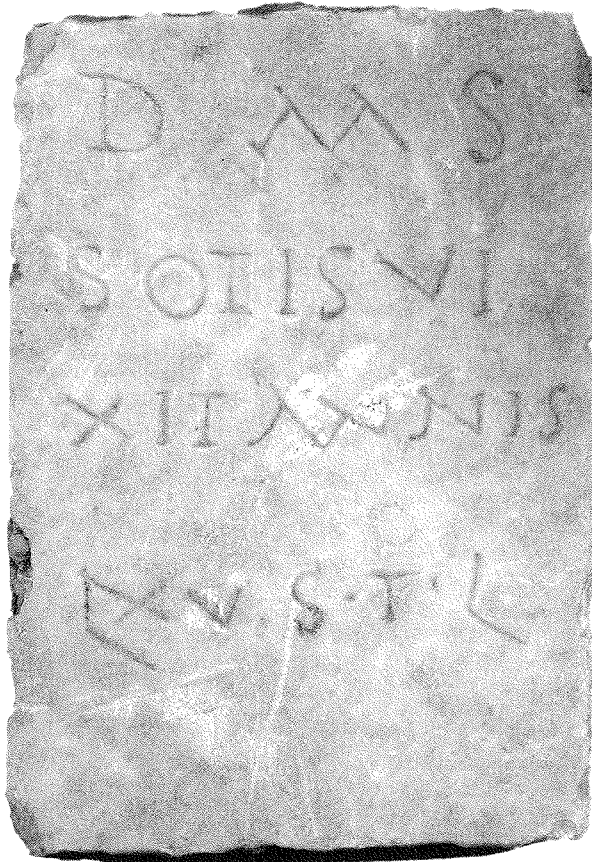 D M S
SOTIS VI
XIT ANNIS
LXV S·T·L